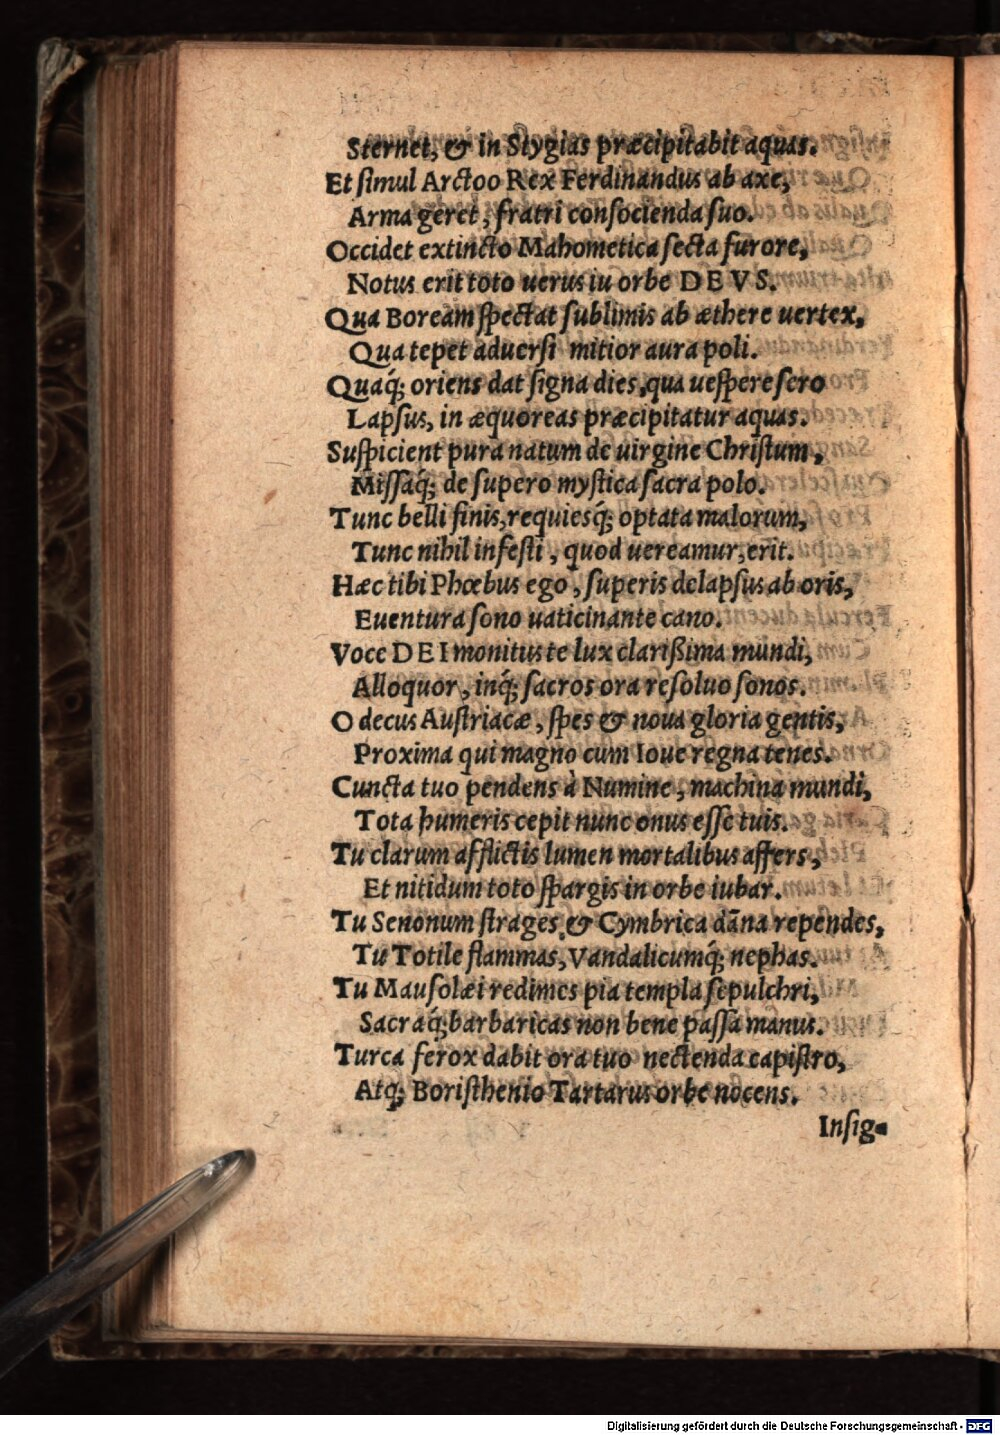 Sternet, & in Stygias præcipitabit aquas.
Et simul Arctoo Rex Ferdinandus ab axe,
Arma geret, fratri consocienda suo.
Occidet extincto Mahometica secta furore,
Notus erit toto uerus iu orbe DEVS.
Qua Boream spectat sublimis ab æthere uertex,
Qua tepet aduersi mitior aura poli.
Quaq́; oriens dat signa dies, qua uespere sero
Lapsus, in æquoreas præcipitatur aquas.
Suspicient pura natum de uirgine Christum,
Missaq́; de supero mystica sacra polo.
Tunc belli finis, requiesq́; optata malorum,
Tunc nihil infesti, quod uereamur, erit.
Hæc tibi Phœbus ego, superis delapsus ab oris,
Euentura sono uaticinante cano.
Voce DEI monitus te lux clarißima mundi,
Alloquor, inq́; sacros ora resoluo sonos.
O decus Austriacæ, spes & noua gloria gentis,
Proxima qui magno cum Ioue regna tenes.
Cuncta tuo pendens à Numine, machina mundi,
Tota humeris cepit nunc onus esse tuis.
Tu clarum afflictis lumen mortalibus affers,
Et nitidum toto spargis in orbe iubar.
Tu Senonum strages, & Cymbrica dāna rependes,
Tu Totile flammas, Vandalicumq́; nephas.
Tu Mausolæi redimes pia templa sepulchri,
Sacraq́; barbaricas non bene passa manus.
Turca ferox dabit ora tuo nectenda capistro,
Atq; Boristhenio Tartarus orbe nocens.
Insig-
Digitalisierung gefördert durch die Deutsche Forschungsgemeinschaft - DFG